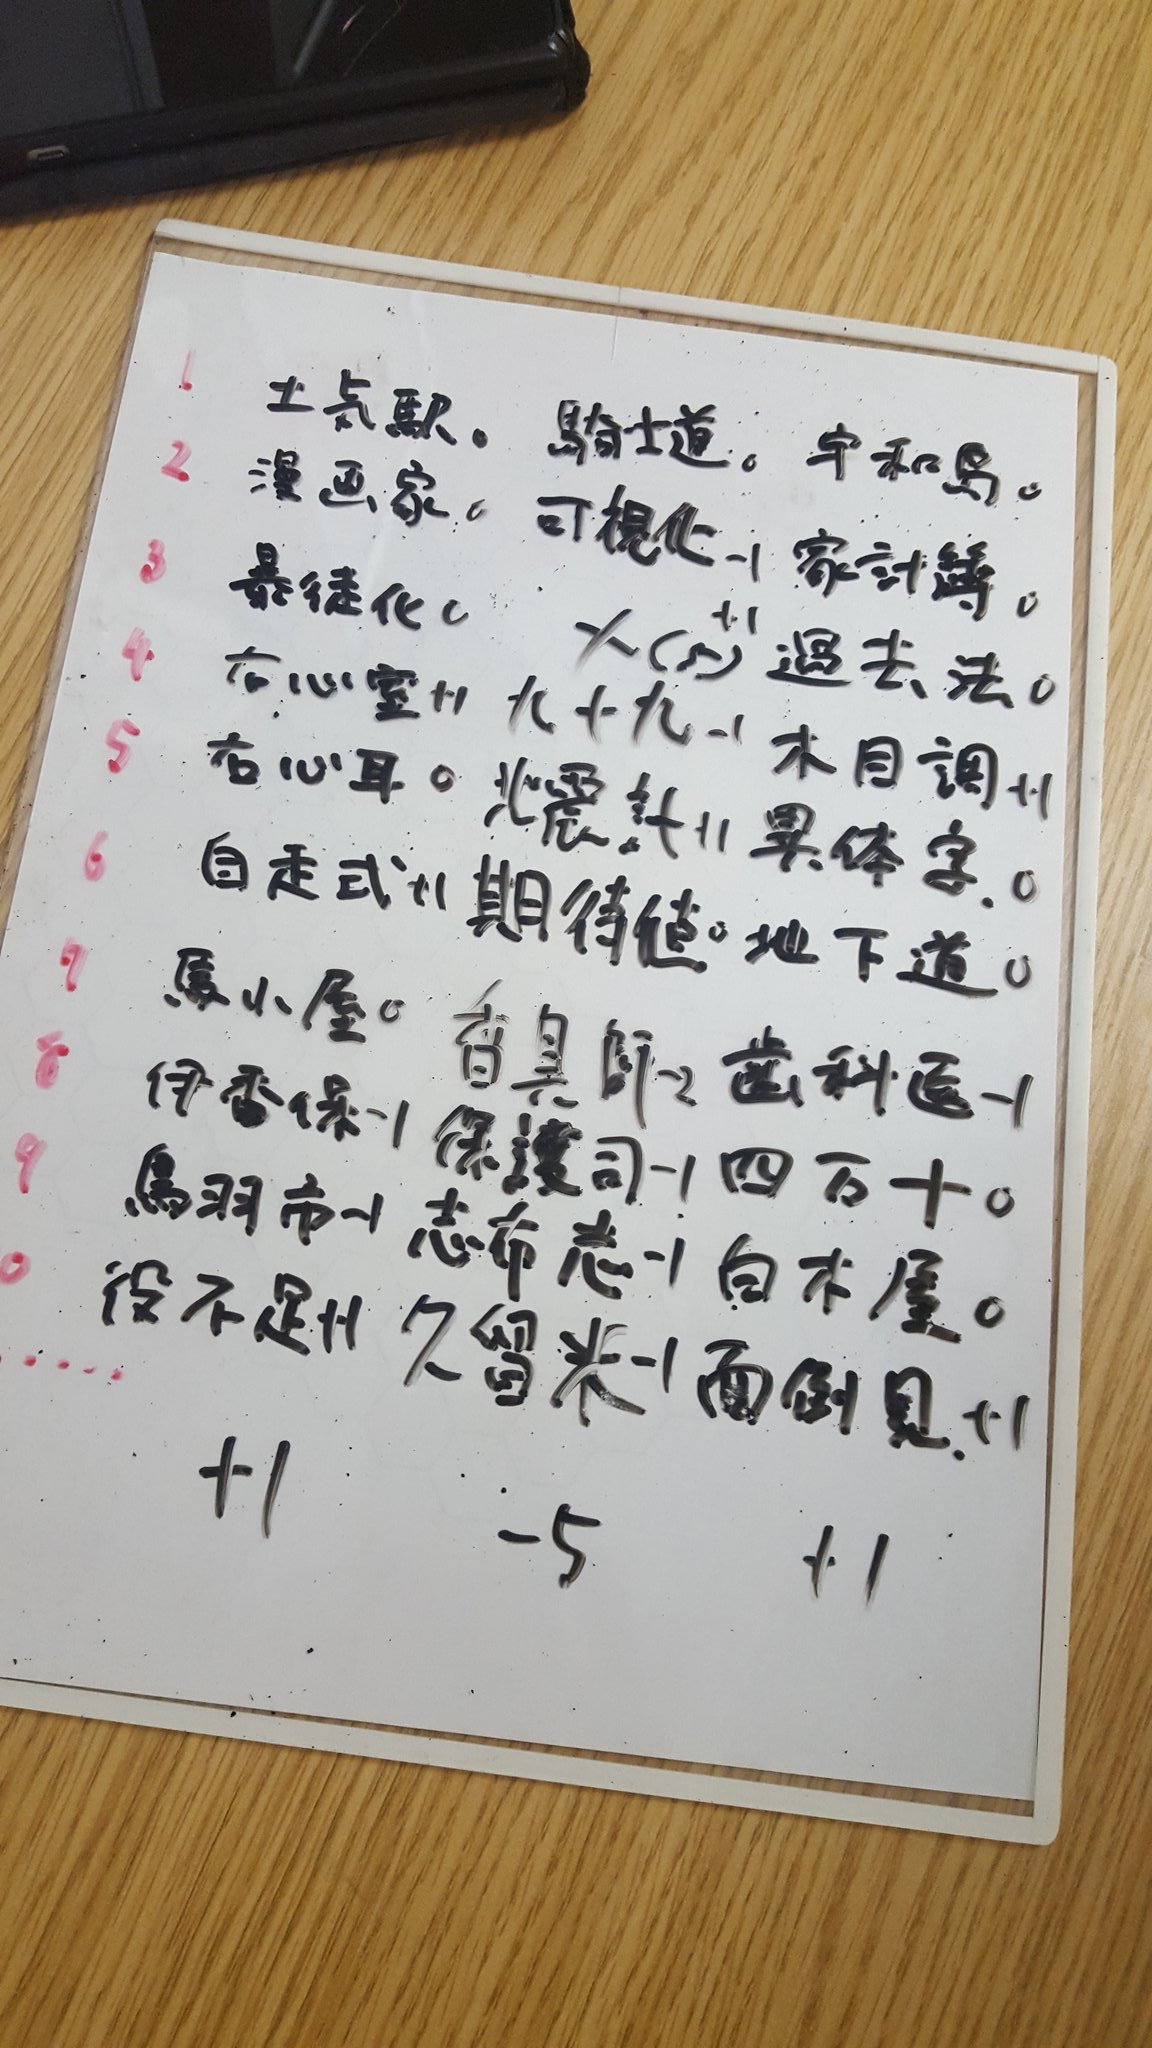 1 土気駅。 騎士道。 宇和島。
2 漫画家。 可視化-1 家計簿。
3 暴徒化。 ×(5)+1 過去法。
4 右心室+1 九十九-1 木目調+1
5 右心耳。 北震 +1 異体字。
6 自走式+1 期待値。 地下道。
7 馬小屋。 香具師-2 歯科医-1
8 伊香保-1 保護司-1 四万十。
9 鳥羽市-1 志布志-1 白木屋。
0 役不足+1 久留米-1 面倒見+1
+1 -5 +1